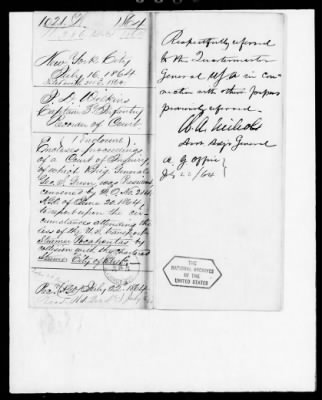 1021 D.
New York City
July 16, 1864
Captain Infantry
Recorder of Court.
(1 Enclosure)
Encloses proceedings
of a Court of Inquiry
of which Brig. General
Geo. S. Green, was President
convened by S.O. No. 214
A.G.O. of June 20, 1864,
to report upon the cir-
cumstances attending the
loss of the U.S. transport
Steamer Pocahontas by
collision with the chartered
Steamer City of
July 22, 1864
Respectfully referred
to the Quartermaster
General U.S.A. in con-
nection with other papers
previously referred.
Asst Adjt General
A. G. Office
July 22/64
THE
NATIONAL ARCHIVES
OF THE
UNITED STATES